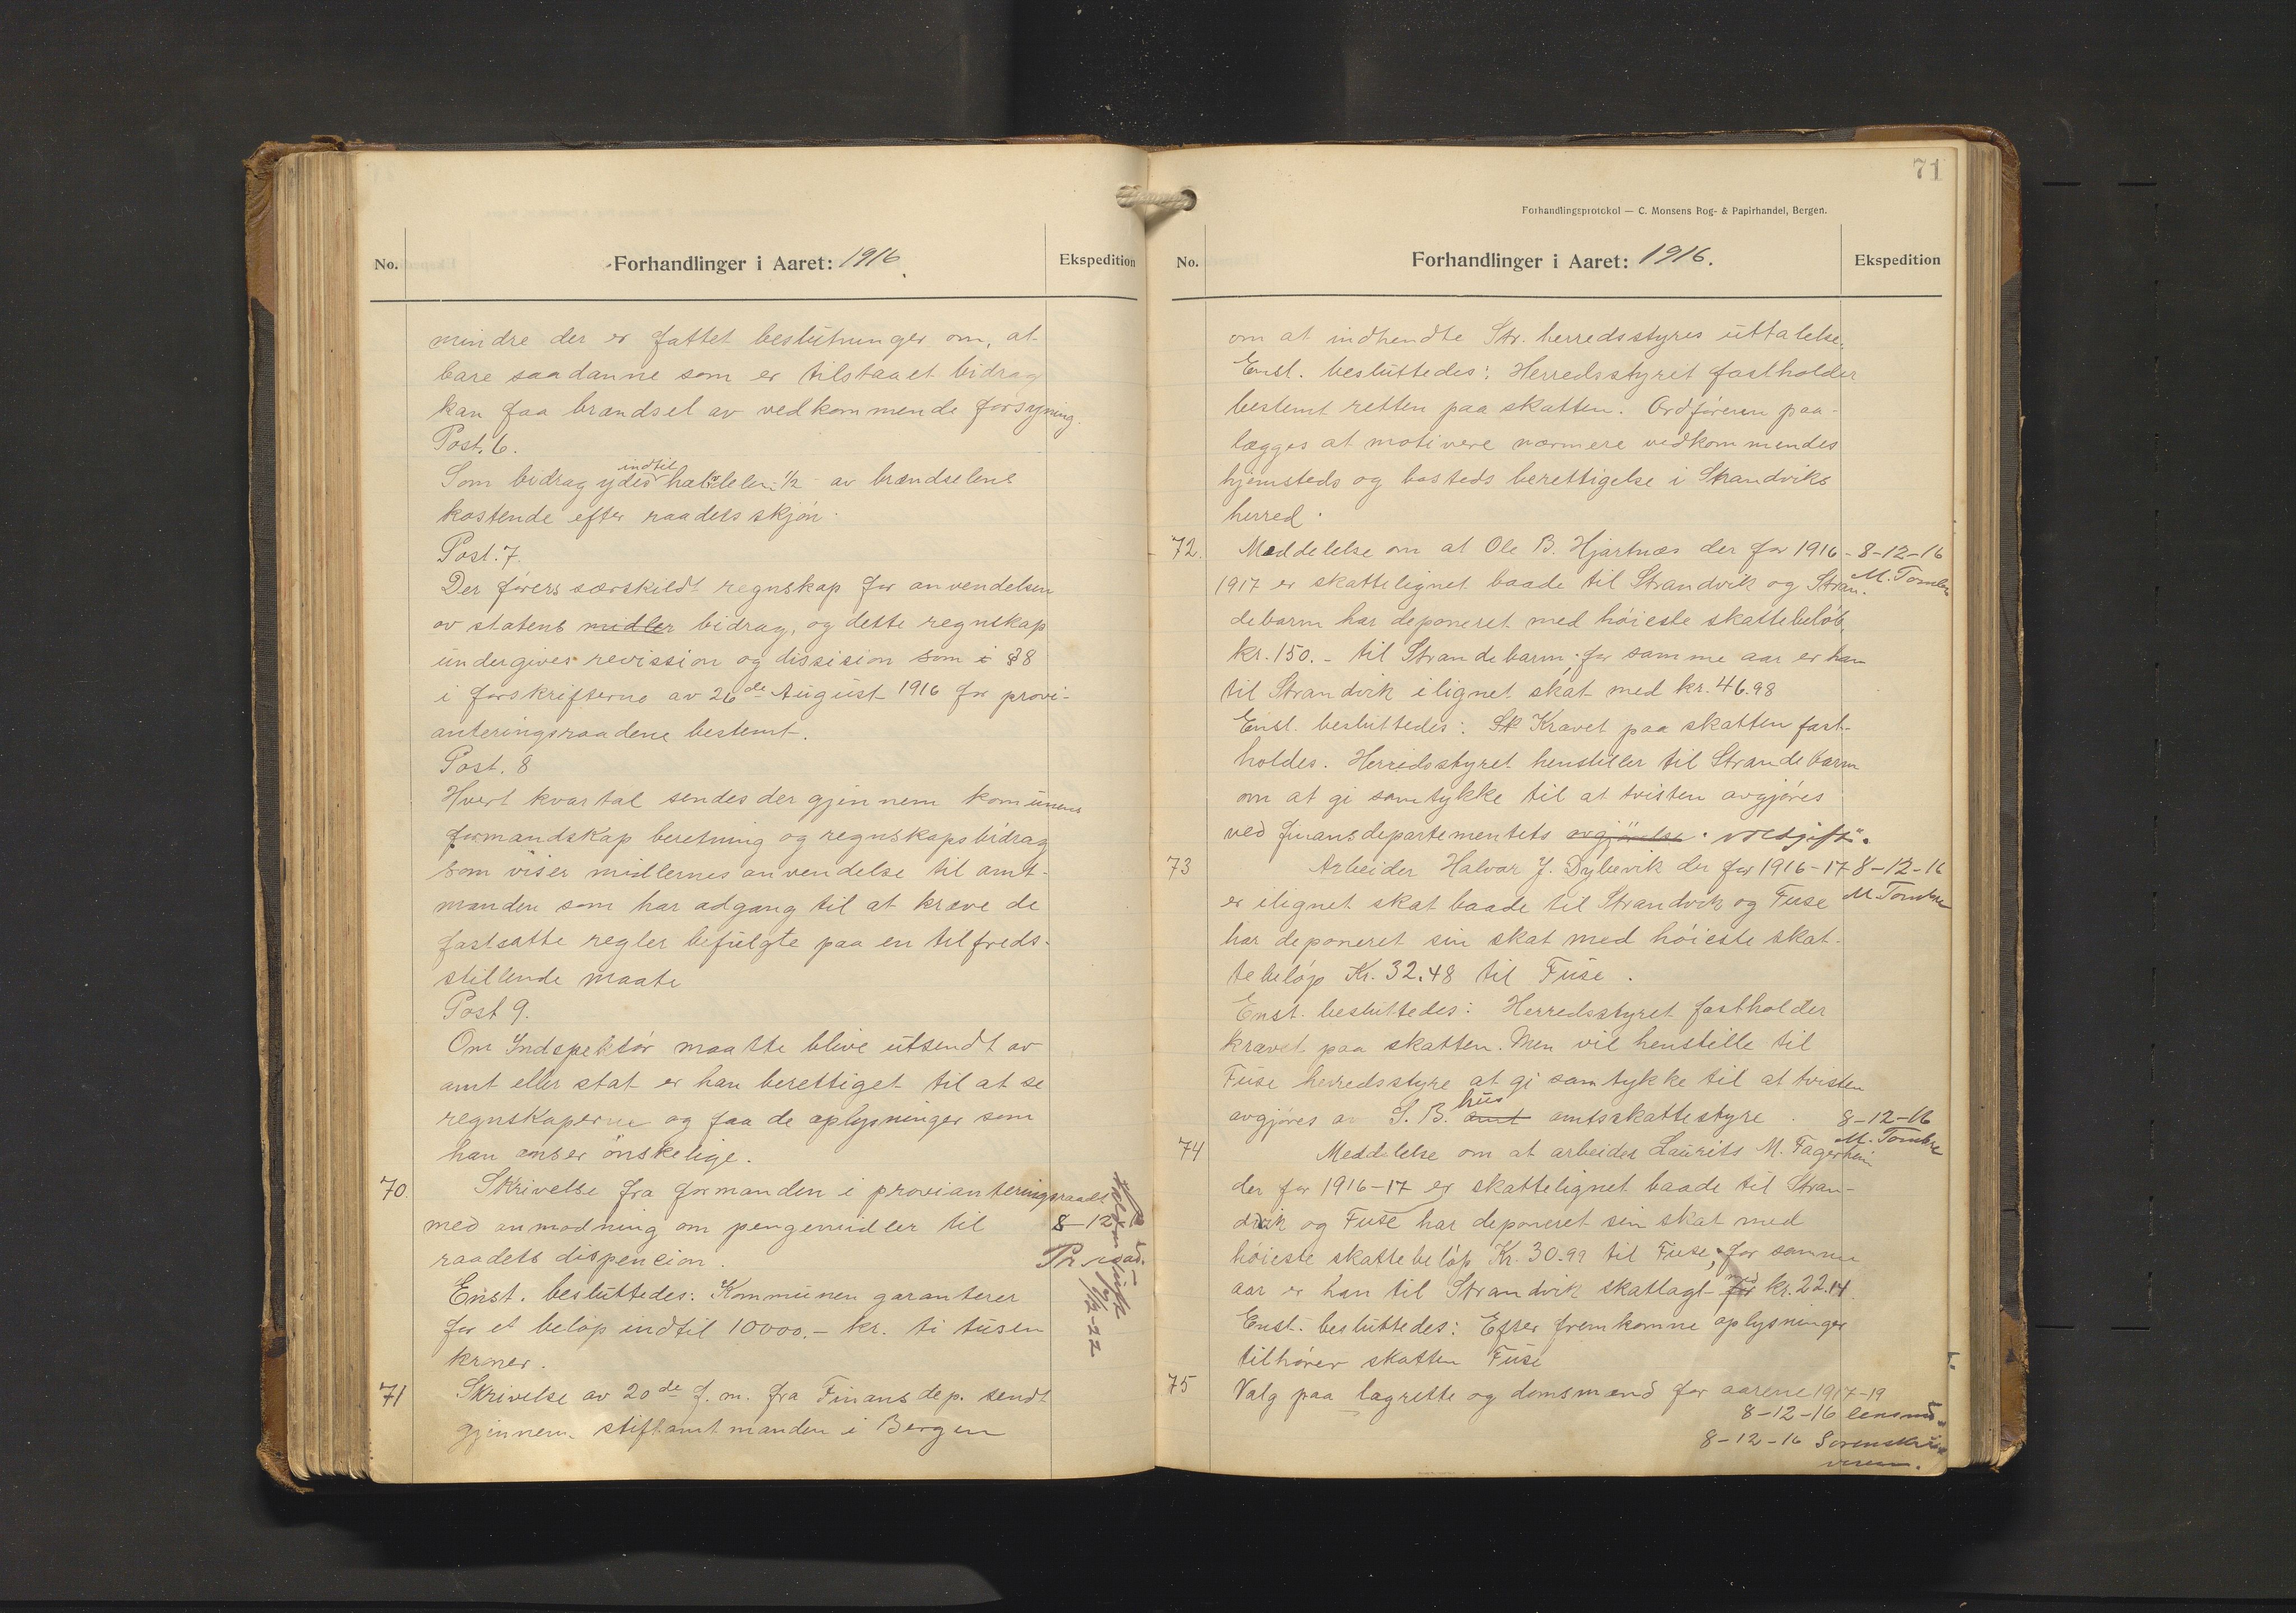 No.
Forhandlinger i Aaret: 1916.
Ekspedition
mindre der er fattet beslutninger om, at
bare saadanne som er tilstaaet bidrag
kan faa brændsel av vedkommende forsyning.
Post. 6.
Som bidrag ydes indtil halvdelen - 1/2 - av brændselens
kostende efter raadets skjøn.
Post. 7.
Der førers særskildt regnskap for anvendelsen
av statens midler bidrag, og dette regnskap
undergives revission og dissision som i § 8
i forskrifterne av 26de August 1916 for provi-
anteringsraadene bestemt.
Post. 8
Hvert kvartal sendes der gjennem komunens
formandskap beretning og regnskapsbidrag
som viser midlernes anvendelse til amt-
manden som har adgang til at kræve de
fastsatte regler befulgte paa en tilfreds-
stillende maate
Post 9.
Om Indspektør maatte blive utsendt av
amt eller stat er han berettiget til at se
regnskaperne og faa de oplysninger som
han anser ønskelige.
70. Skrivelse fra formanden i provianteringsraadet
med anmodning om pengemidler til 8-12
raadets dispencion.
Enst. besluttedes: Kommunen garanterer
for et beløp indtil 10000.- kr. ti tusen
kroner.
71 Skrivelse av 20de f. m. fra Finansdep. sendt
gjennem stiftamtmanden i Bergen
71
Forhandlingsprotokol — C. Monsens Bog- & Papirhandel, Bergen.
No.
Forhandlinger i Aaret: 1916.
Ekspedition
om at indhendte Str. herredsstyres uttalelse.
Enst. besluttedes: Herredsstyret fastholder
bestemt retten paa skatten. Ordføreren paa-
lægges at motivere nærmere vedkommendes
hjemsteds og bosteds berettigelse i Strandviks
herred.
72. Meddelelse om at Ole B. Hjartnæs der for 1916- 8-12-16
1917 er skattelignet baade til Strandvik og Stran- M. Tombre
debarm har deponeret med høieste skattebeløb,
kr. 150.- til Strandebarm; for samme aar er han
til Strandvik ilignet skat med kr. 46.98
Enst. besluttedes: Sk Kravet paa skatten fast-
holdes. Herredsstyret henstiller til Strandebarm
om at gi samtykke til at tvisten avgjøres
ved finansdepartementets avgjørelse. voldgift.
73 Arbeider Halvor J. Dybevik der for 1916-17 8-12-16
er ilignet skat baade til Strandvik og Fuse M. Tombre
har deponeret sin skat med høieste skat-
tebeløp Kr. 32.48 til Fuse.
Enst. besluttedes: Herredsstyret fastholder
kravet paa skatten. Men vil henstille til
Fuse herredsstyre at gi samtykke til at tvisten
avgjøres av S. B. hus amt amtsskattestyre. 8-12-16
M. Tombre
74 Meddelelse om at arbeider Laurits M. Fagerheim
der for 1916-17 er skattelignet baade til Stran-
dvik og Fuse har deponeret sin skat med
høieste skattebeløp Kr. 30.99 til Fuse, for samme
aar er han til Strandvik skatlagt for med kr. 22.14.
Enst. besluttedes: Efter fremkomne oplysninger
tilhører skatten Fuse
75 Valg paa lagrette og domsmænd for aarene 1917-19
8-12-16 lensmd.
8-12-16 Sorenskri-
veren.